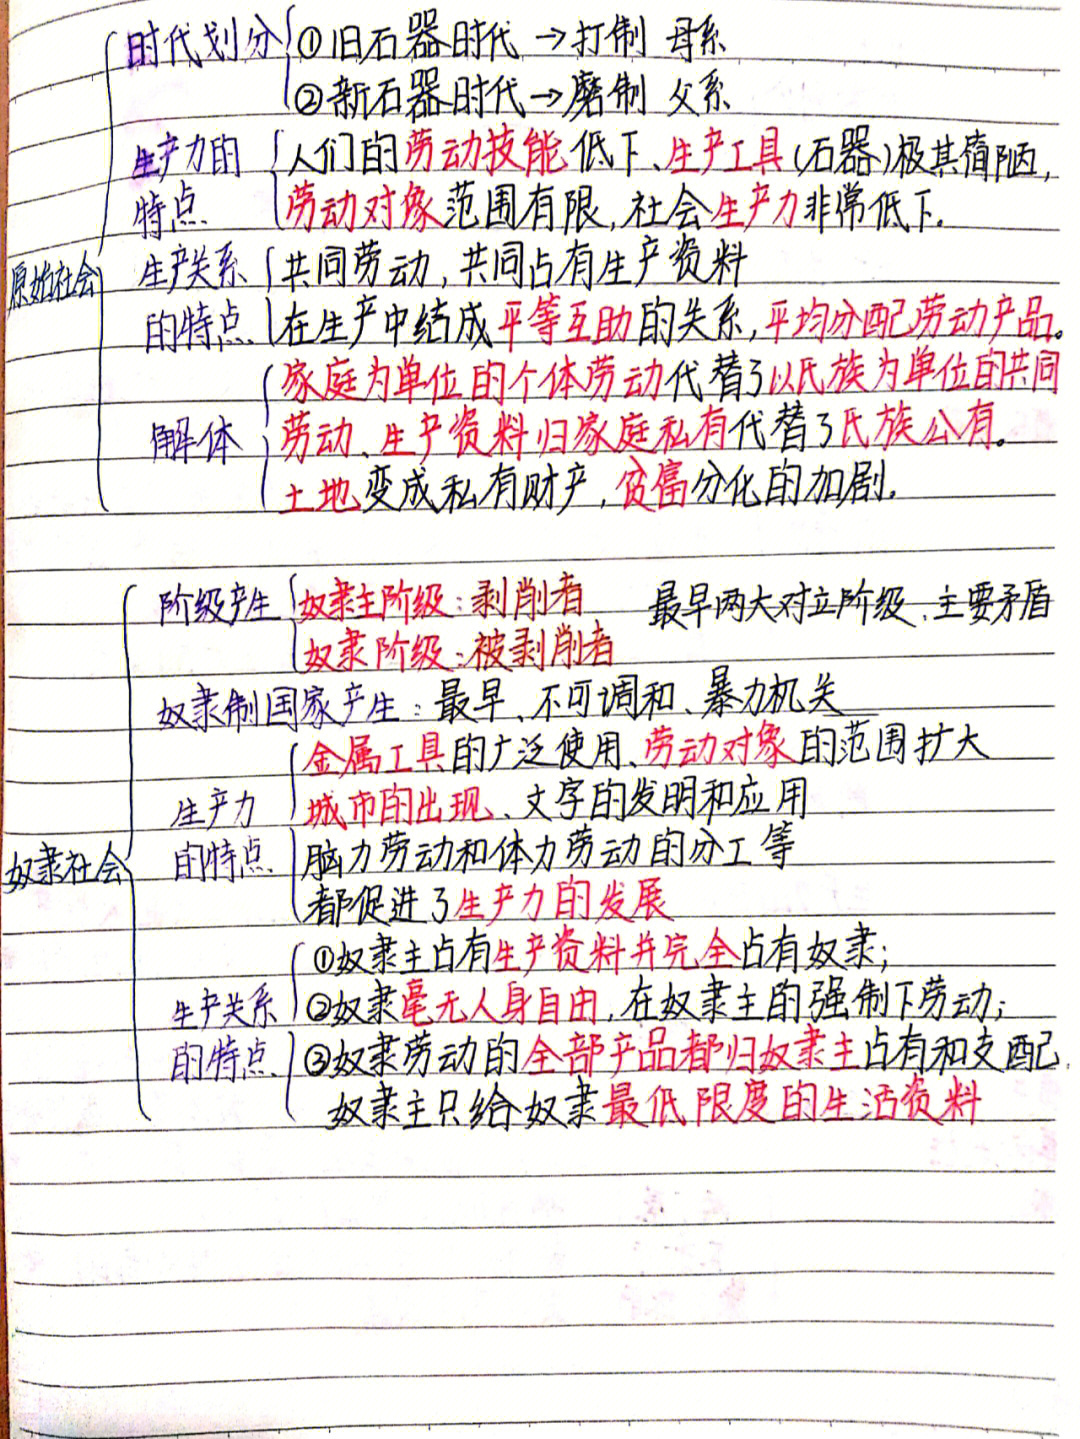 时代划分 ①旧石器时代 → 打制 母系
②新石器时代 → 磨制 父系
生产力的 人们的劳动技能低下、生产工具(石器)极其简陋,
特点 劳动对像范围有限,社会生产力非常低下.
原始社会
生产关系 共同劳动,共同占有生产资料
的特点 在生产中结成平等互助的关系,平均分配劳动产品。
家庭为单位的个体劳动代替了以氏族为单位的共同
解体 劳动、生产资料归家庭私有代替了氏族公有。
土地变成私有财产,贫富分化的加剧.
阶级产生 奴隶主阶级:剥削者 最早两大对立阶级、主要矛盾
奴隶阶级:被剥削者
奴隶制国家产生:最早、不可调和、暴力机关
金属工具的广泛使用、劳动对象的范围扩大
生产力 城市的出现、文字的发明和应用
奴隶社会
的特点 脑力劳动和体力劳动的分工等
都促进了生产力的发展
①奴隶主占有生产资料并完全占有奴隶;
生产关系 ②奴隶毫无人身自由,在奴隶主的强制下劳动;
的特点 ③奴隶劳动的全部产品都归奴隶主占有和支配,
奴隶主只给奴隶最低限度的生活资料